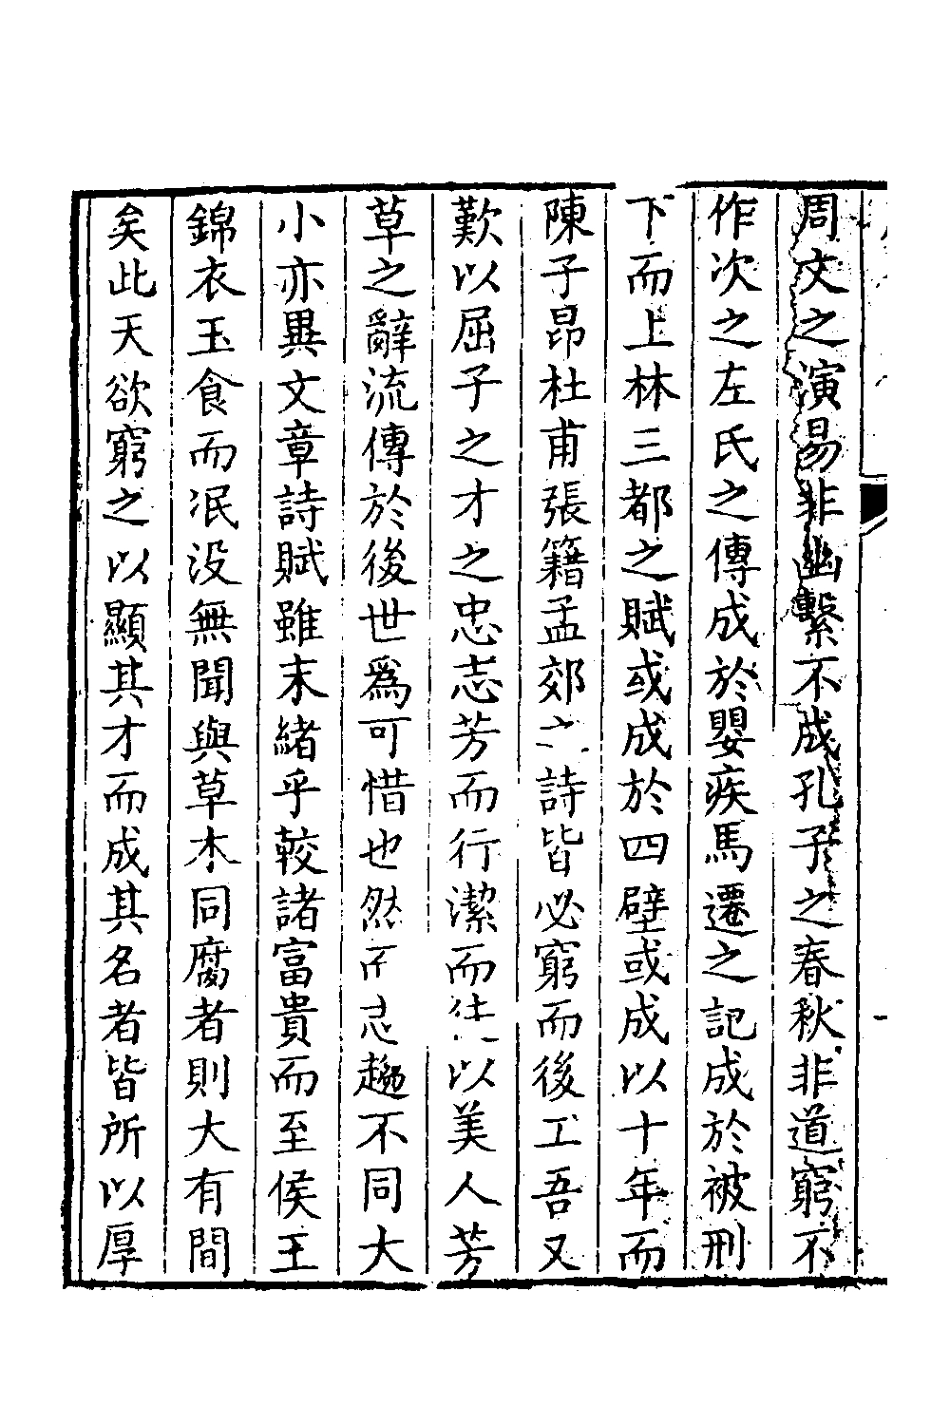 周文之演易非幽繫不成孔子之春秋非道窮不
作次之左氏之傳成於嬰疾馬遷之記成於被刑
下而上林三都之賦或成於四壁或成以十年而
陳子昂杜甫張籍孟郊之詩皆必窮而後工吾又
歎以屈子之才之忠志芳而行潔而以美人芳
草之辭流傳於後世爲可惜也然而志趣不同大
小亦異文章詩賦雖末緒乎較諸富貴而至侯王
錦衣玉食而泯没無聞與草木同腐者則大有間
矣此天欲窮之以顯其才而成其名者皆所以厚